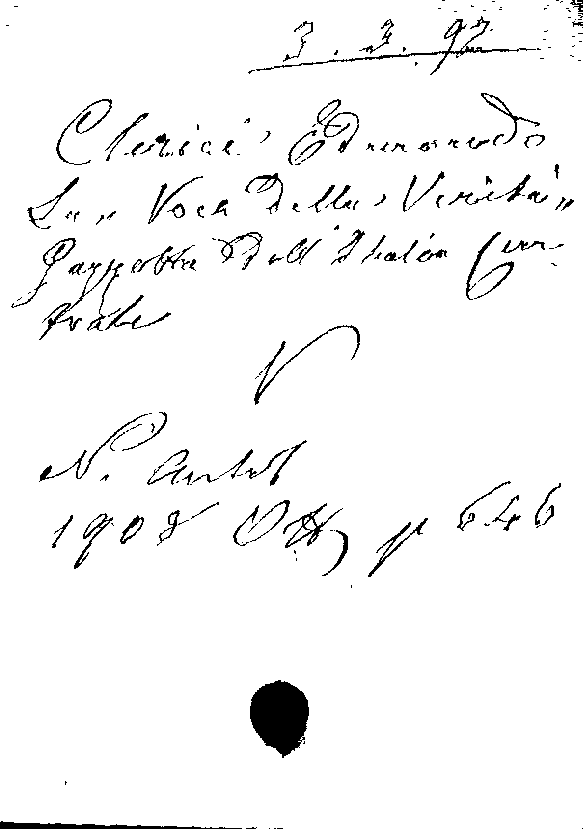 3.3.92
Clerici Edmondo
La „Voce della Verità„
Gazzetta dell'Italia Cen-
trale
N. Antol
1908 Ott, p 646